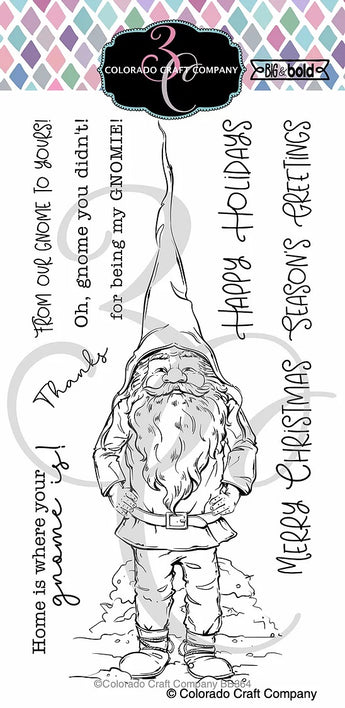 3C
COLORADO CRAFT COMPANY
BIG & bold
FROM OUR GNOME TO YOURS!
Oh, gnome you didn't!
for being my GNOMIE!
Thanks
Home is where your
gnome is!
HAPPY HOLIDAYS
SEASON'S GREETINGS
MERRY CHRISTMAS
©Colorado Craft Company BB364
© Colorado Craft Company